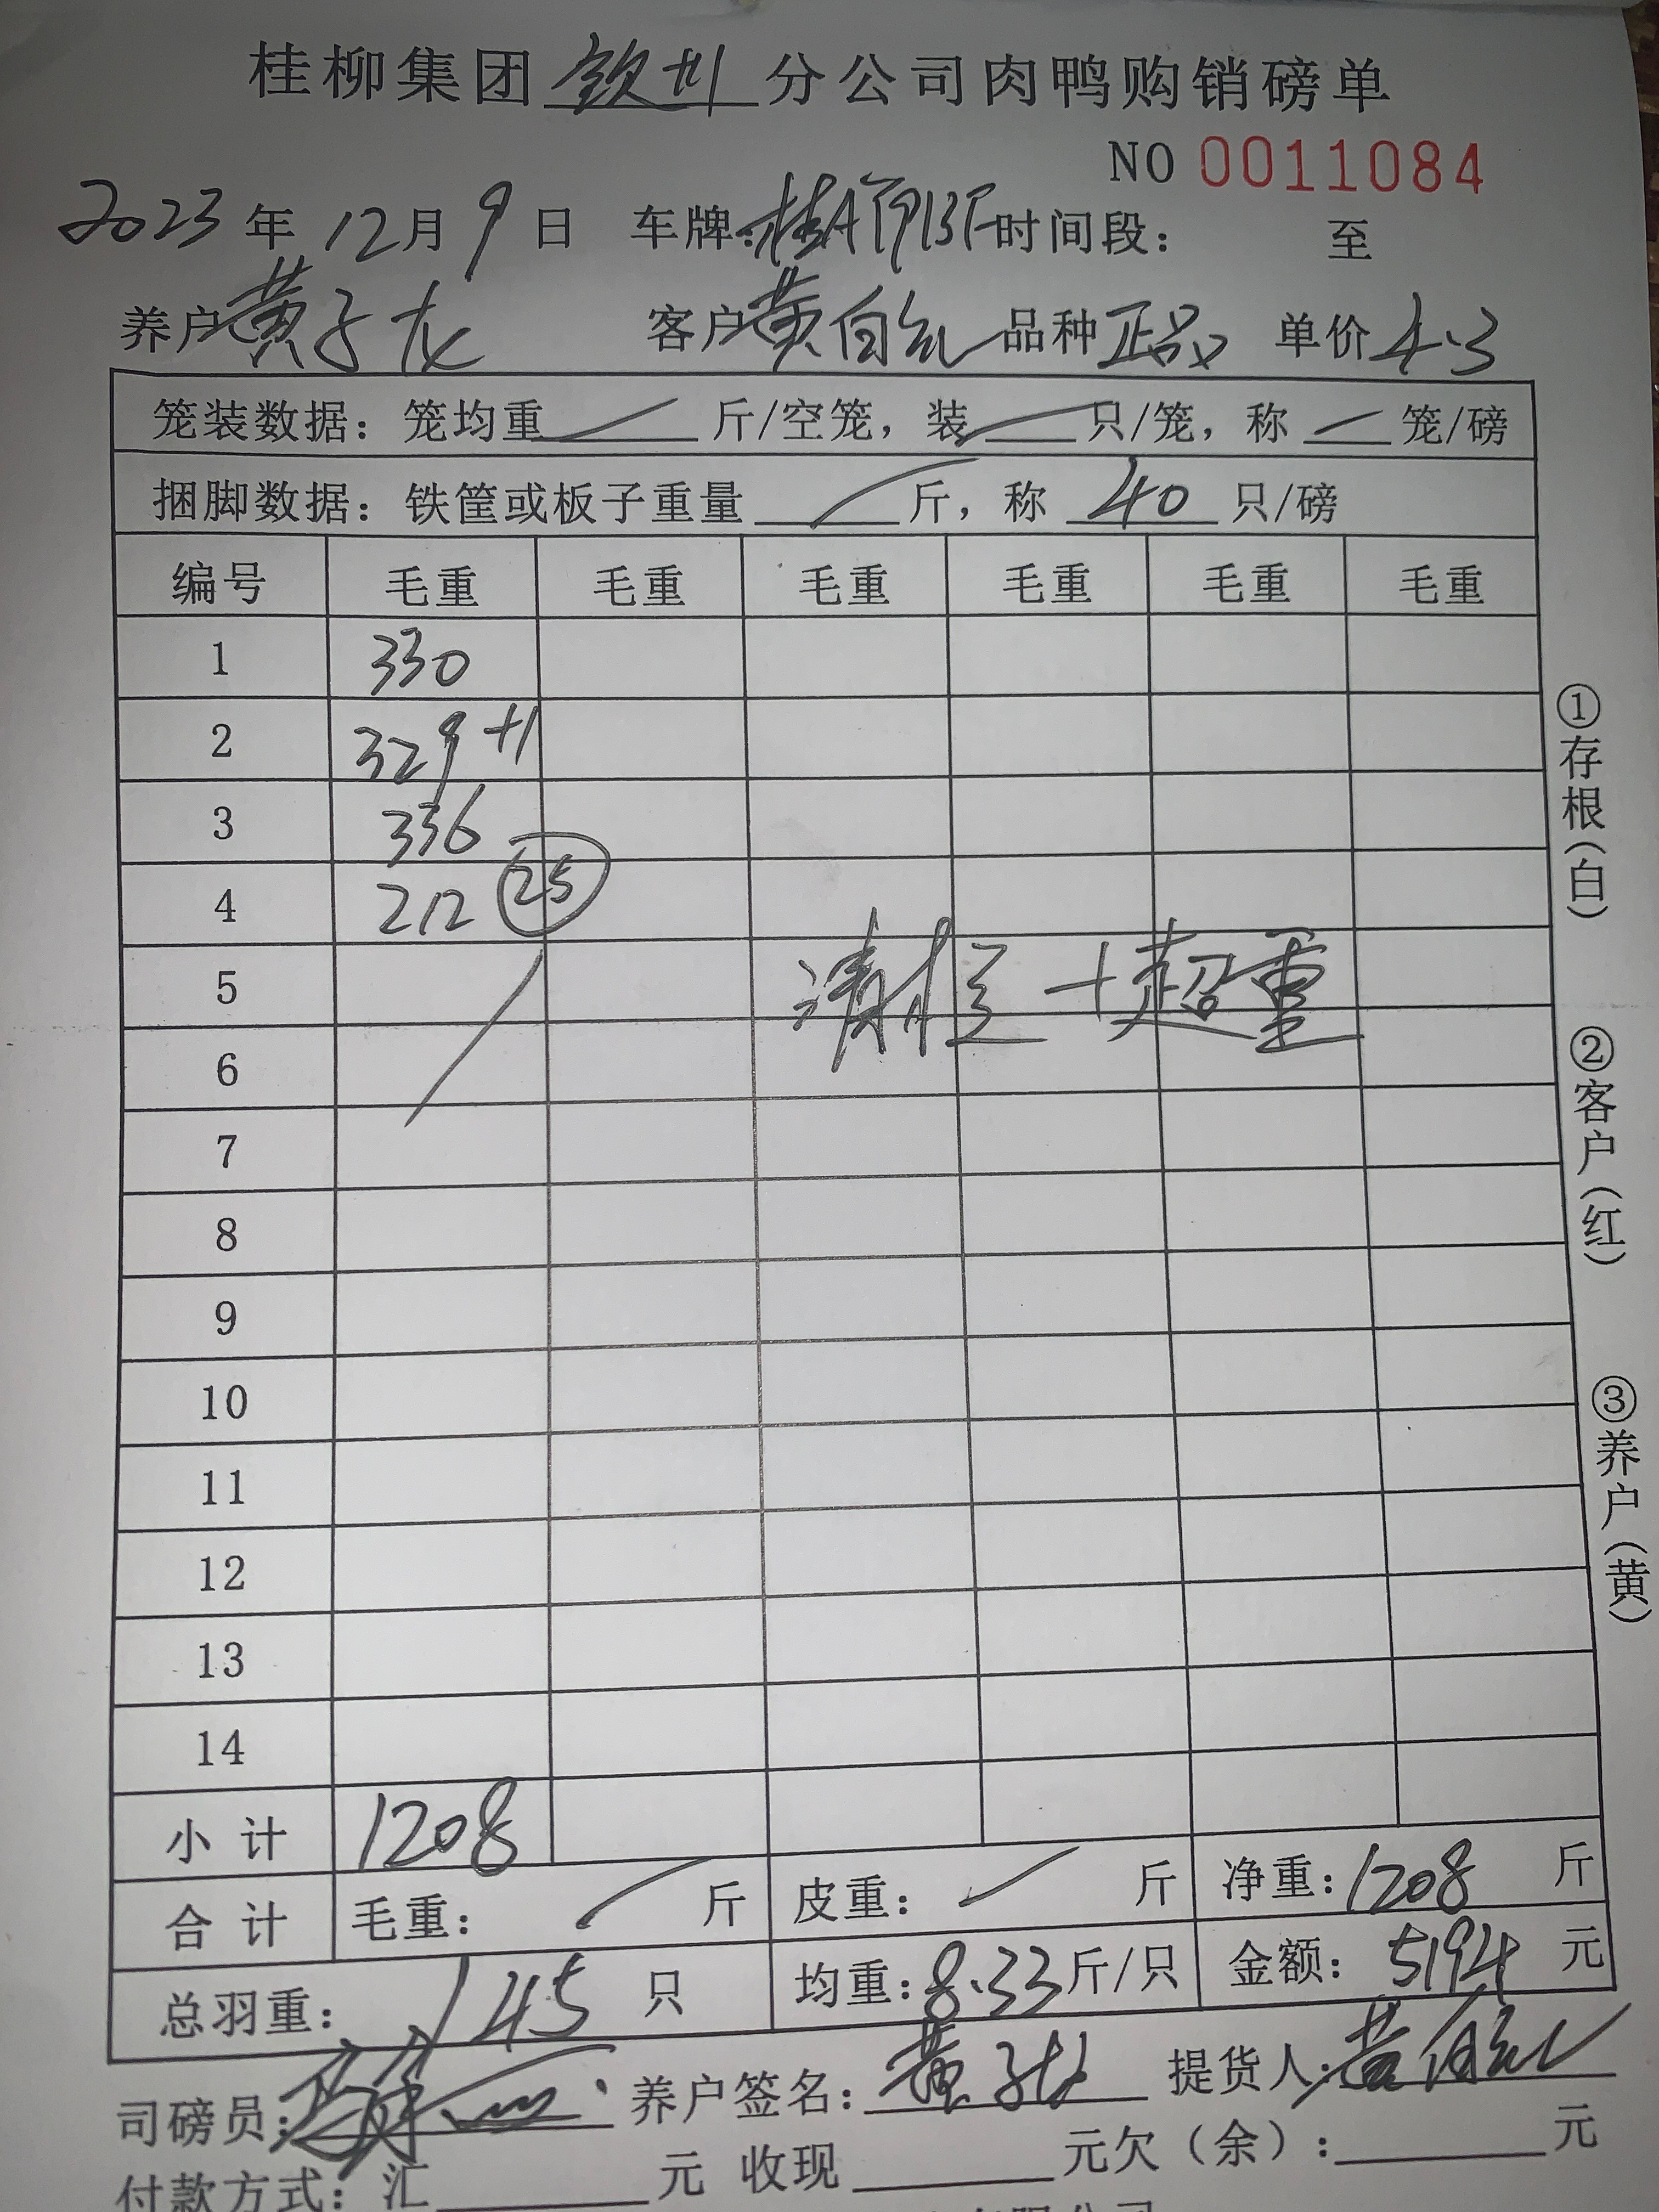 桂柳集团钦州分公司肉鸭购销磅单
NO 0011084
2023年12月9日 车牌:桂A 时间段: 至
养户黄子龙 客户黄自 品种正品 单价4.3
笼装数据:笼均重 斤/空笼,装 只/笼,称 笼/磅
捆脚数据:铁筐或板子重量 斤,称 40 只/磅
编号 毛重 毛重 毛重 毛重 毛重 毛重
1 330
2 329 +1
3 336
4 212 25
5 清 超重
6
7
8
9
10
11
12
13
14
小计 1208
合计 毛重: 斤 皮重: 斤 净重:1208 斤
总羽重: 145 只 均重:8.33斤/只 金额: 5194 元
司磅员: 养户签名:黄子龙 提货人:黄自
付款方式:汇 元 收现 元欠(余): 元
①存根(白)
②客户(红)
③养户(黄)